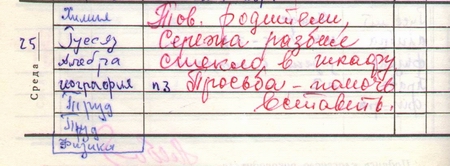 Химия Тов. родители,
25 Среда Русяз Сережа разбил
Алгебра стекло в шкафу
география п3 Просьба - помочь
Труд вставить.
Труд
Физика